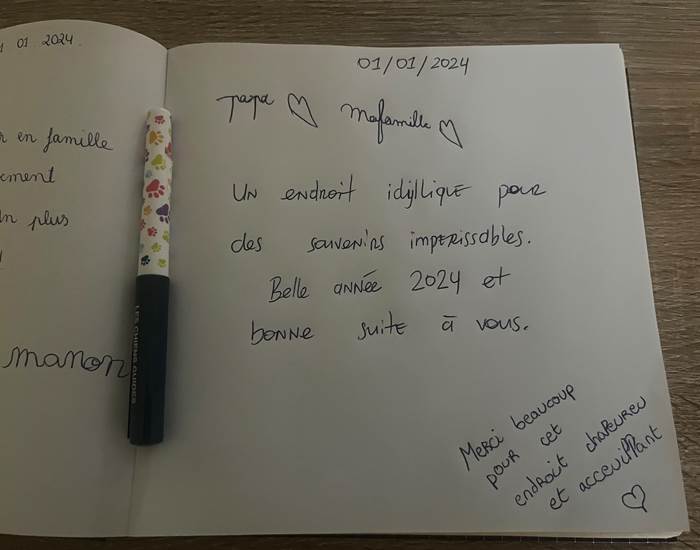 01 2024
en famille
plus
manon
LES CHIENS GUIDES
01/01/2024
papa ♡ Mafamille ♡
UN endroit idyllique pour
des souvenirs imperissables.
Belle année 2024 et
bonne suite à vous.
Merci beaucoup
pour cet
endroit chaleureu
et acceuillant
♡